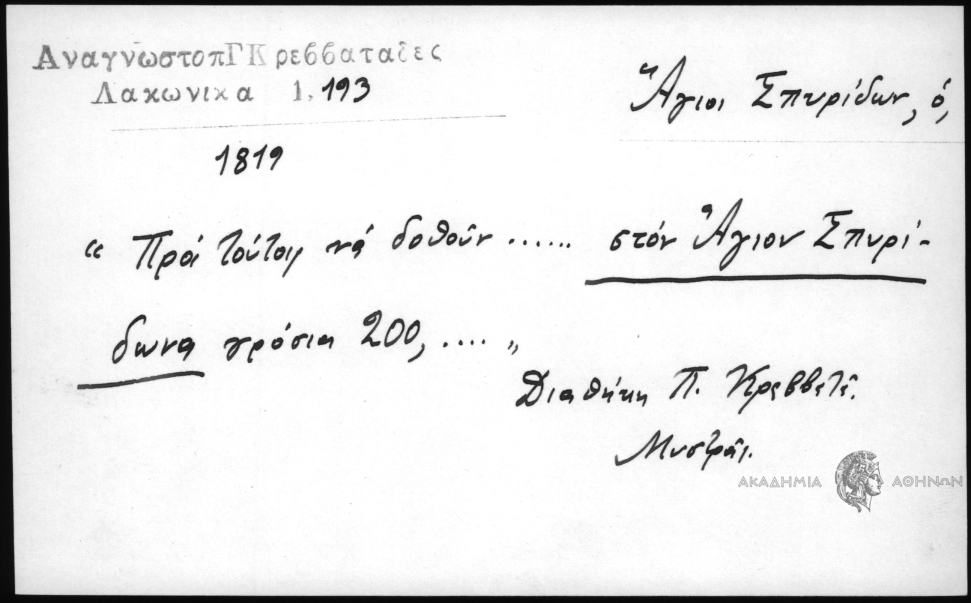 ΑναγνωστοπΓΚρεββαταδες
Λακωνικα 1, 193
Ἅγιοι Σπυρίδων, ὁ,
1819
“ Πρὸς τούτοις νά δοθοῦν ...... στόν Ἅγιον Σπυρί-
δωνα γρόσια 200, .... „
Διαθήκη Π. Κρεββατᾶ.
Μυστρᾶς.
ΑΚΑΔΗΜΙΑ ΑΘΗΝΩΝ